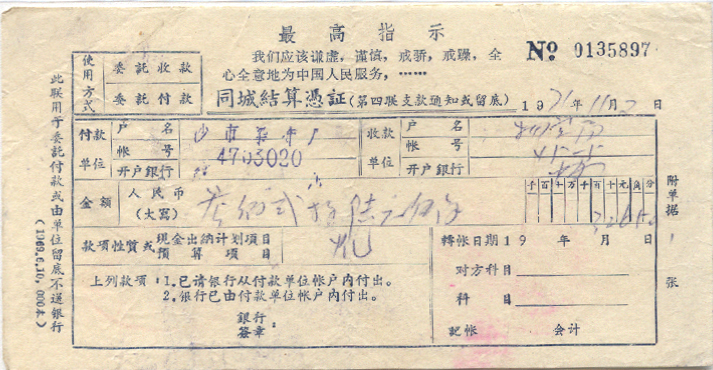 最高指示
我们应该谦虚，谨慎，戒骄，戒躁，全
心全意地为中国人民服务，……
№ 0135897
使用方式
委託收款
委託付款
同城结算憑証(第四联支款通知或留底) 1971年11月 日
付款单位
户名
帐号 4703020
开户銀行
收款单位
户名
帐号
开户銀行
金额
人民币
(大寫) 叁佰弍拾陆元
千百十万千百十元角分
款项性質或
现金出納计划项目
预算项目
轉帐日期19 年 月 日
上列款项：1.已请銀行从付款单位帐户内付出。
2.銀行已由付款单位帐户内付出。
对方科目
科目
銀行
簽章:
記帐 会计
此联用于委託付款或由单位留底不遞銀行
(1969.6.10,000本)
附单据 张